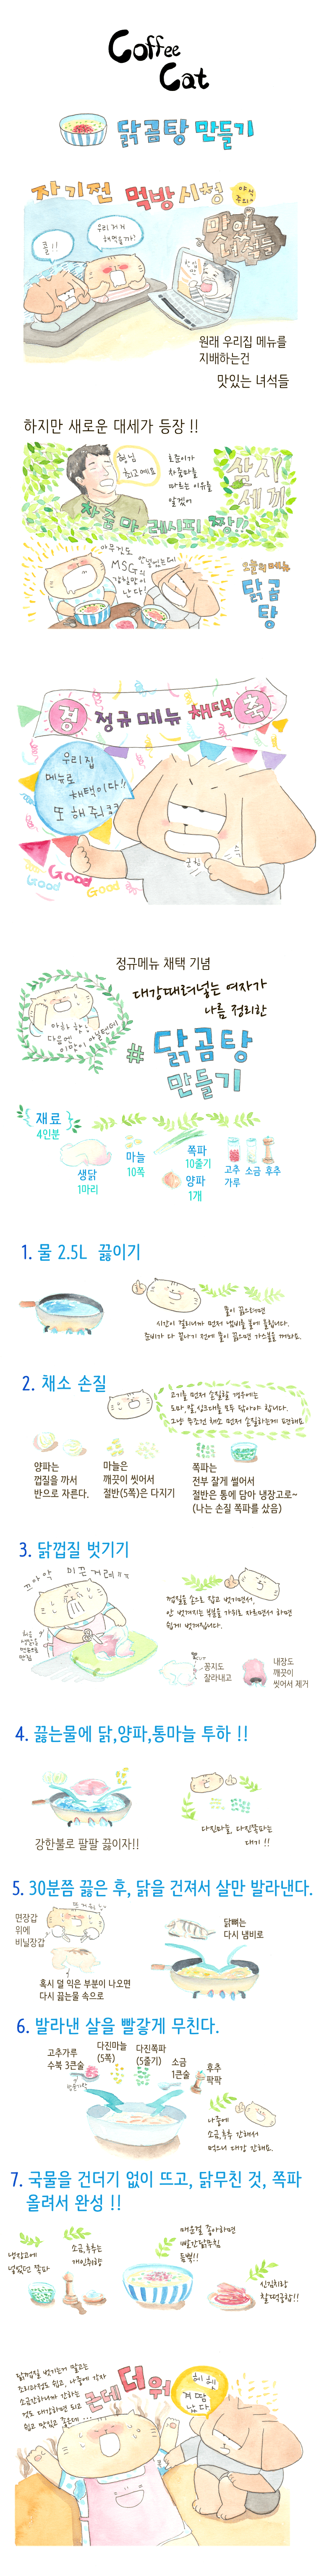 Coffee
Cat
닭곰탕 만들기
자기전 먹방시청
야식
주의?
맛있는
녀석들
우리 저거
해먹을까?
콜!!
원래 우리집 메뉴를
지배하는건
맛있는 녀석들
하지만 새로운 대세가 등장 !!
형님
최고예요
호준이가
차줌마를
따르는 이유를
알겠어
삼시
세끼
차줌마 레시피 짱!!
아무것도
안넣었는데
MSG의
감칠맛이
난다!
오늘의메뉴
닭곰
탕
경 정규메뉴 채택 축
우리집
메뉴로
채택이다!!
또 해줘
Good
Good
Good
정규메뉴 채택 기념
대강때려넣는 여자가
나름 정리한
# 닭곰탕
만들기
재료
4인분
생닭
1마리
마늘
10쪽
쪽파
10줄기
양파
1개
고추
가루
소금
후추
1. 물 2.5L 끓이기
물이 끓으려면
시간이 걸리니까 먼저 냄비를 불에 올립니다.
준비가 다 끝나기 전에 물이 끓으면 가스불을 꺼놔요.
2. 채소 손질
고기를 먼저 손질할 경우에는
도마,칼,싱크대를 모두 닦아야 합니다.
그냥 무조건 채소 먼저 손질하는게 편해요
양파는
껍질을 까서
반으로 자른다.
마늘은
깨끗이 씻어서
절반(5쪽)은 다지기
쪽파는
전부 잘게 썰어서
절반은 통에 담아 냉장고로~
(나는 손질 쪽파를 샀음)
3. 닭껍질 벗기기
끄아악 미끈거려ㅠㅠ
껍질을 손으로 잡고 벗기면서,
안 벗겨지는 부분을 가위로 자르면서 하면
쉽게 벗겨집니다.
꽁지도
잘라내고
내장도
깨끗이
씻어서 제거
4. 끓는물에 닭,양파,통마늘 투하 !!
강한불로 팔팔 끓이자!!
다진마늘, 다진쪽파는
대기 !!
5. 30분쯤 끓은 후, 닭을 건져서 살만 발라낸다.
면장갑
위에
비닐장갑
혹시 덜 익은 부분이 나오면
다시 끓는물 속으로
닭뼈는
다시 냄비로
6. 발라낸 살을 빨갛게 무친다.
고추가루
수북 3큰술
다진마늘
(5쪽)
다진쪽파
(5줄기)
소금
1큰술
후추
팍팍
밥숟가락
나중에
소금,후추 간해서
먹으니 대강 간해요.
7. 국물을 건더기 없이 뜨고, 닭무친 것, 쪽파
올려서 완성 !!
냉장고에
넣었던 쪽파
소금,후추는
개인취향
매운걸 좋아하면
빨간닭무침
듬뿍!!
신김치랑
찰떡궁합!!
닭껍질 벗기는거 말고는
조리과정도 쉽고, 나중에 각자
소금간하니까 간하는
것도 대강하면 되고
쉽고 맛있고 좋은데 ...
근데 더워
헤헷
계 땀
났다